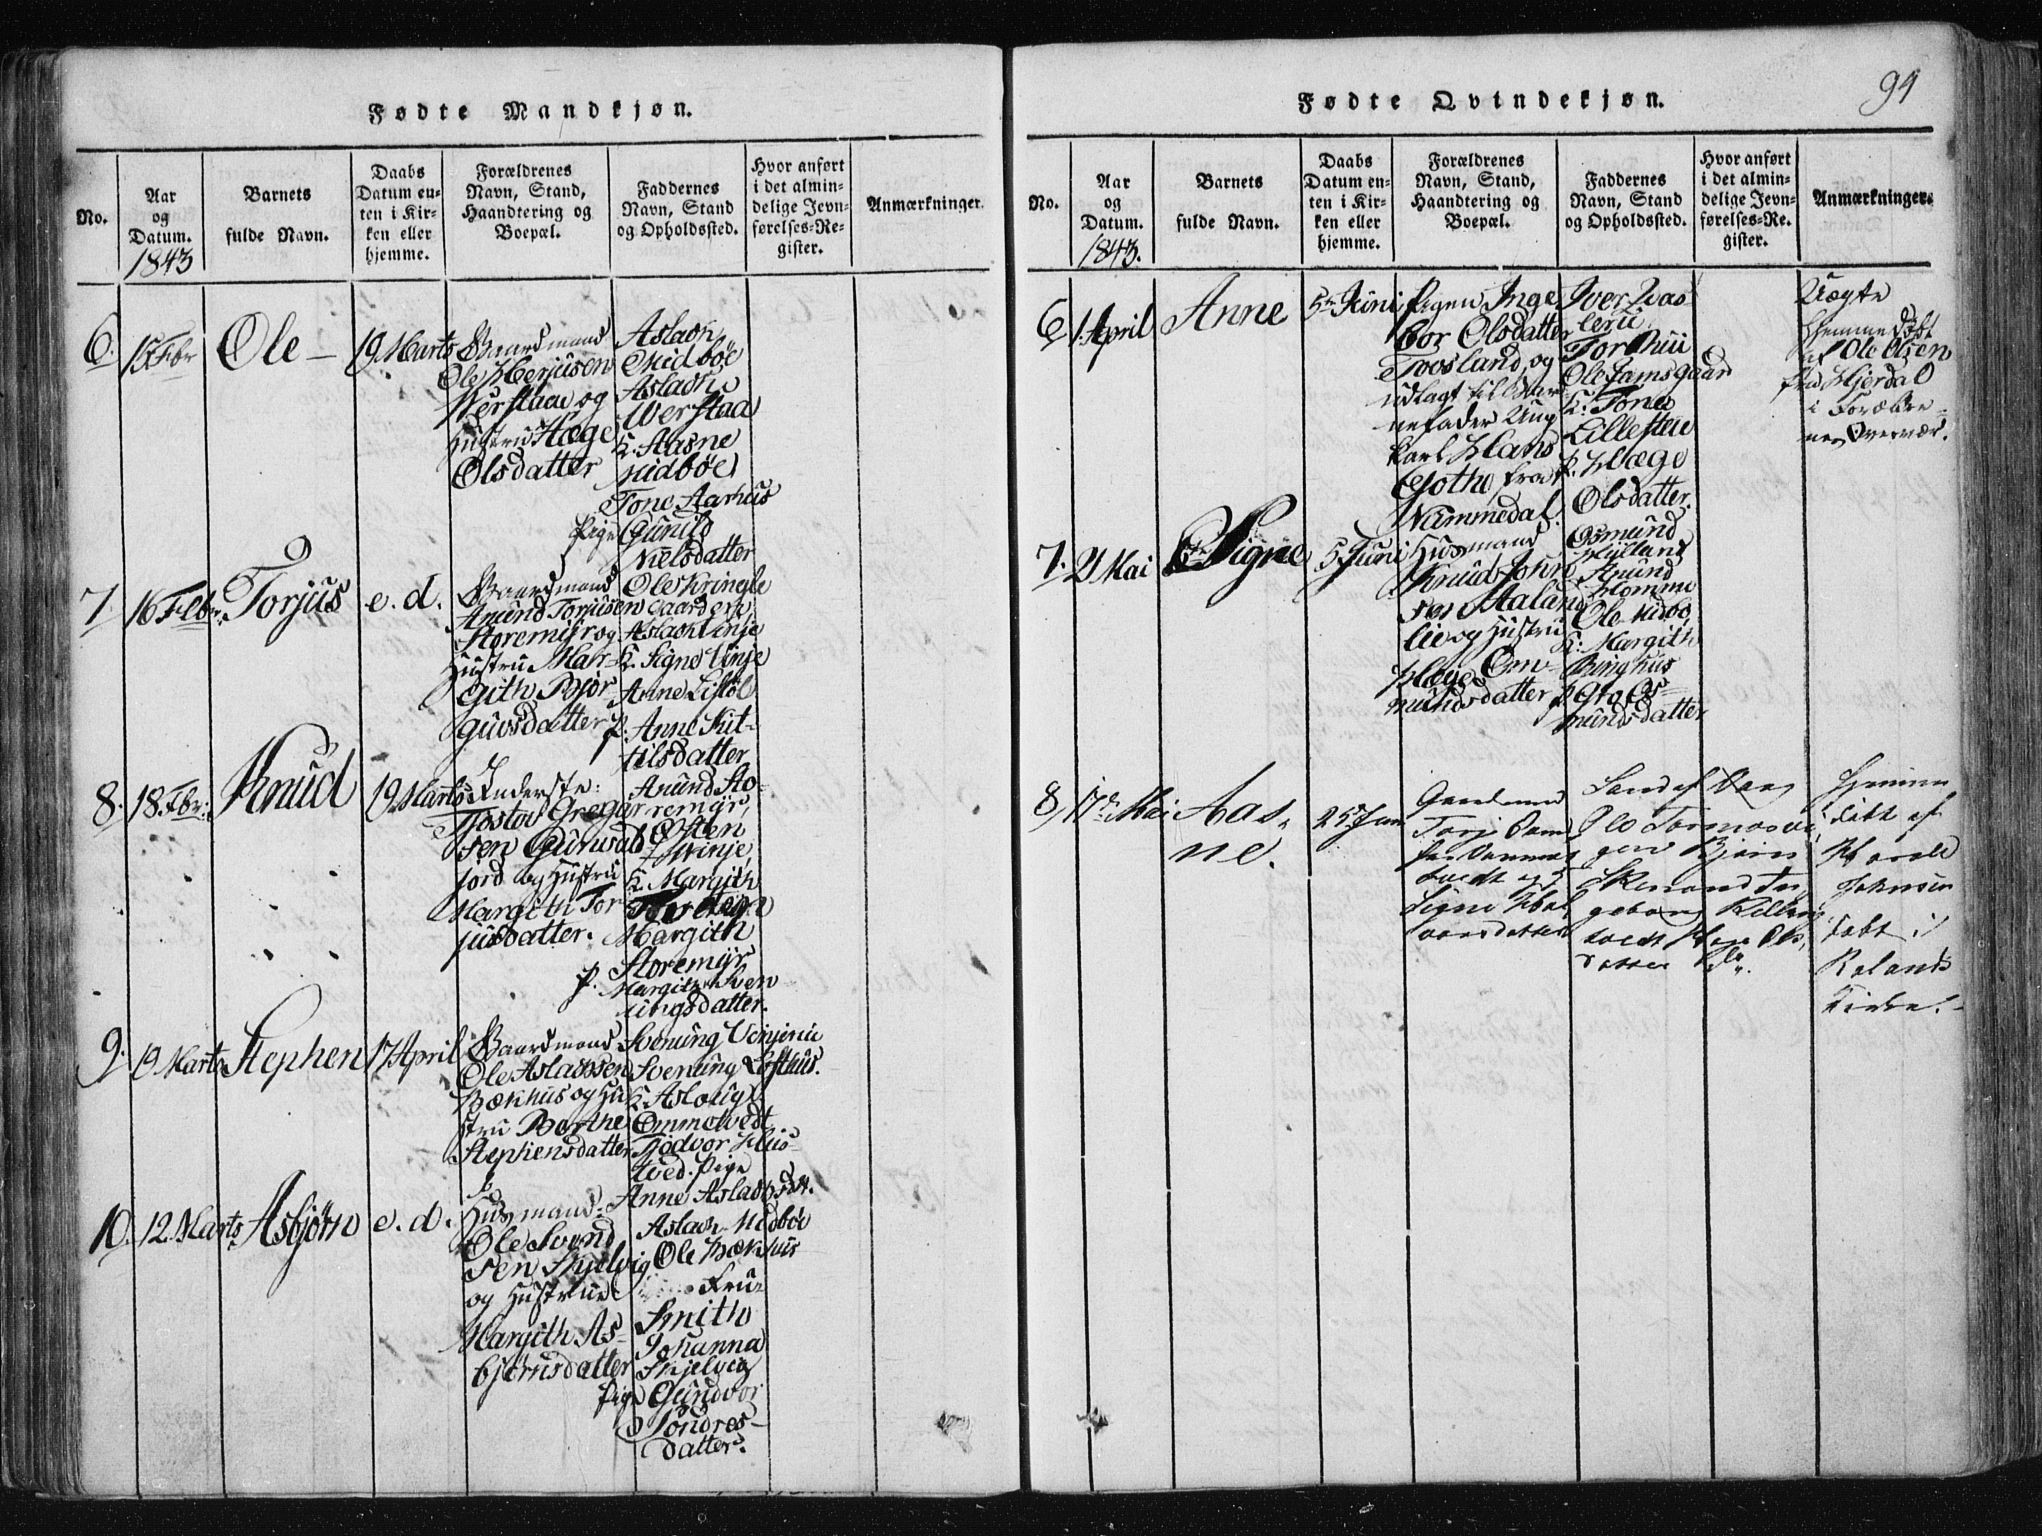 Fødte Mandkjøn.
No.
Aar
og
Datum.
1843
Barnets
fulde Navn.
Daabs
Datum en-
ten i Kir-
ken eller
hjemme.
Forældrenes
Navn, Stand,
Haandtering og
Boepæl.
Faddernes
Navn, Stand
og Opholdssted.
Hvor anført
i det almin-
delige Jevn-
førelses-Re-
gister.
Anmærkninger.
6.
15 Fbr
Ole
19 Marts
Gaardmand
Ole Herjusen
Werstaae og
Hustru Hæge
Olsdatter
Aslach
Midbøe
Aslach
Werstaa
K. Aasne
Midbøe
Tone Aarhus
Pige Gunild
Nielsdatter
7
16 Febr.
Torjus
e. d.
Gaardmand
Anund Torjusen
Storemyr og
Hustru Mar-
gith Bjør
guvsdatter
Ole Kringle
gaarden
Aslach Vinje
K. Signe Vinje
Anne Lisløl
P. Anne Kit-
tilsdatter
8.
18. Fbr:
Knud
19 Marts
Inderste:
Tjostov Gregar
sen Gunvald
jord og Hustru
Margith Tor
jusdatter.
Anund Sto-
remyr,
Østen
Vinje,
K. Margith
Margith
Storemyr
P. Margith Sven
ungsdatter.
9.
9 Marts
Stephen
17 April
Gaardmand
Ole Aslachsen
Bækhus og Hu
stru Berthe
Stephensdatter
Svenung Vinjerui
Svenung Lofthus.
K. Aslaug
Ommetvedt
Tjodvor Hus-
tved. Pige
Anne Aslachsdtr.
10.
12. Marts
Asbjørn
e. d.
Husmand:
Ole Svend
sen Skjelvig
og Hustrue
Margith As-
bjørnsdatter
Aslach Midbøe
Ole Bækhus
Fru
Smith
Johanna
Skjelvig
Pige Gundvor
Sondres-
datter.
94
Fødte Qvindekjøn.
No.
Aar
og
Datum.
1843.
Barnets
fulde Navn.
Daabs
Datum en-
ten i Kir-
ken eller
hjemme.
Forældrenes
Navn, Stand,
Haandtering og
Boepæl.
Faddernes
Navn, Stand
og Opholdssted.
Hvor anført
i det almin-
delige Jevn-
førelses-Re-
gister.
Anmærkninger.
6
1. April
Anne
5te Juni
Pigen Inge
bor Olsdatter
Toosland, og
udlagt til Bar
nefader Ung
karl Hans
Gothe, fra
Nummedal.
Iver Vas
lerii
Tor Huii
Ole Jamsgaard
K. Tone
Lilleste
P. Hæge
Olsdatter.
Uægte
Hjemme Døbt
af Ole Olsen
fra Hjerdal
i Foreldre-
nes Overvær.
7.
21 Mai
Signe
5 Juni
Husmand
Knud John
sen Aaland
lie og Hustru
Hæge Om-
mundsdatter
Osmund
Hylland
Anund
Homme
Ole Midbø
K: Margith
Bringhus
P. Gro Os-
mundsdatter
8
17de Mai
Aas-
ne.
25 Jun
Gaardmand
tvedt og
Signe Hal
vorsdatter
geborg
tvedt
datter
Hjemme
døbt af
Harald
Johnsen
døbt i
Rolands
Kirke.